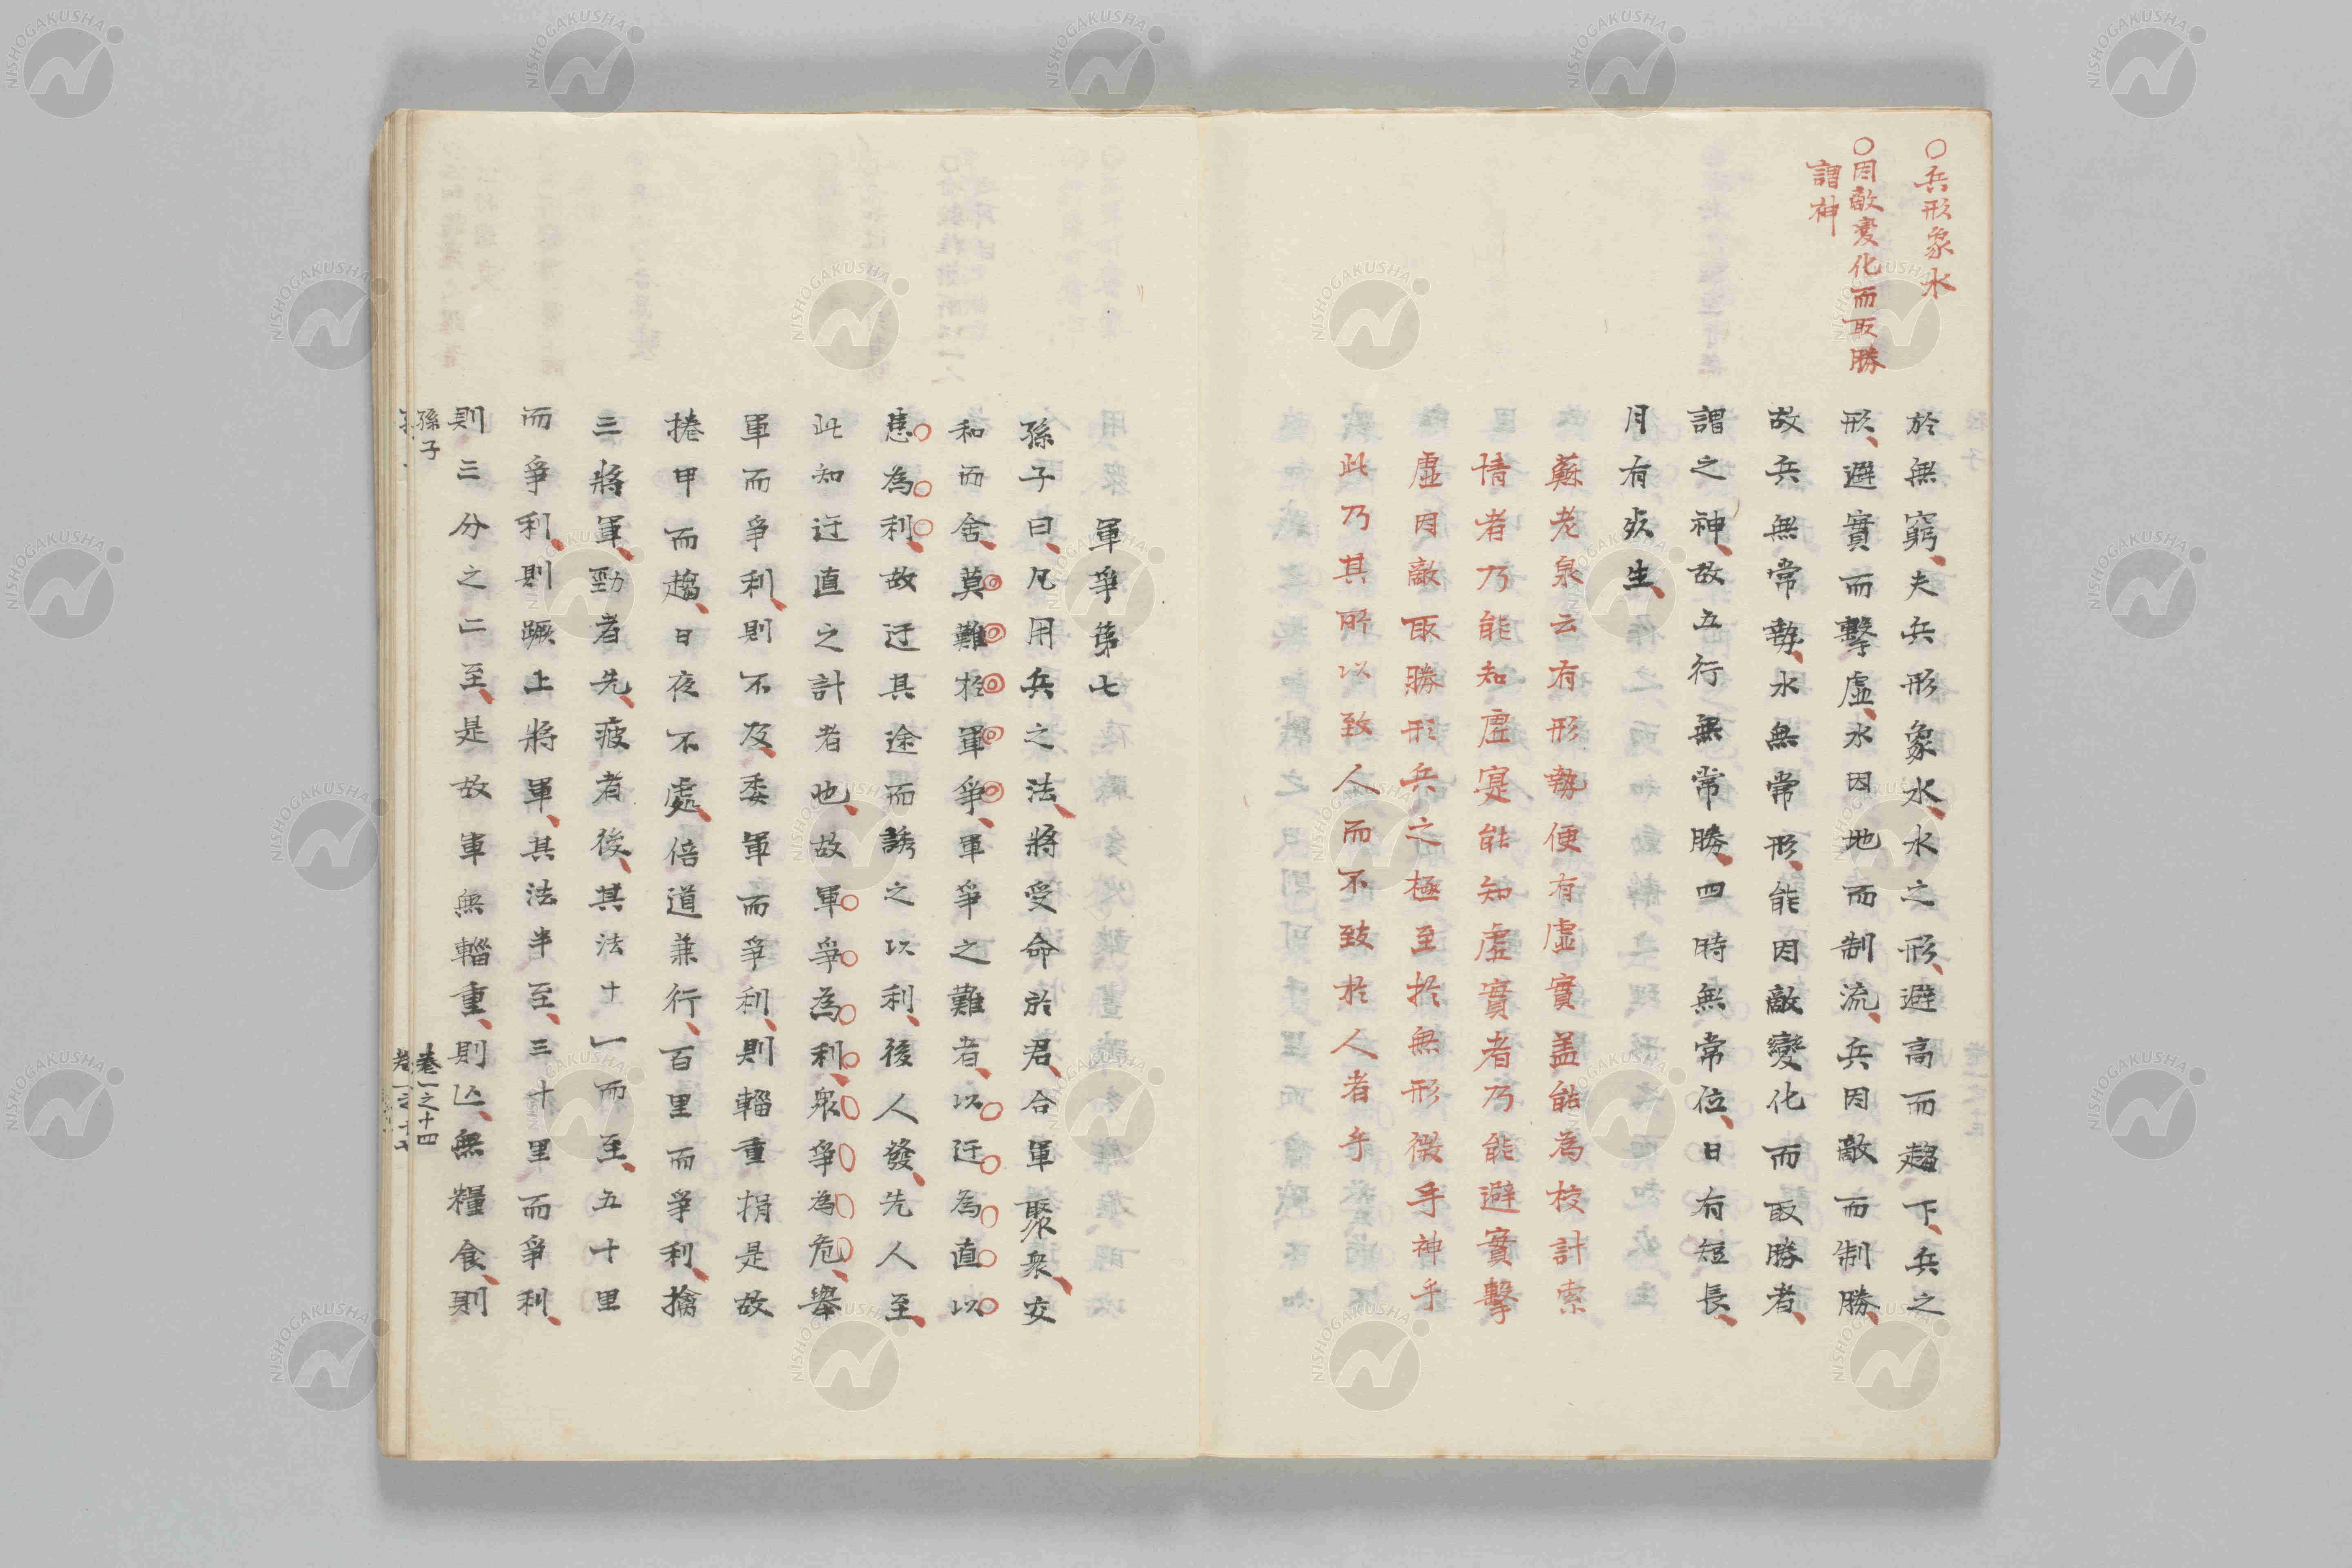 ○兵形象水
○因敵變化而取勝
謂神
於無窮、夫兵形象水、水之形、避高而趨下、兵之
形、避實而擊虛、水因地而制流、兵因敵而制勝、
故兵無常勢、水無常形、能因敵變化而取勝者、
謂之神、故五行無常勝、四時無常位、日有短長、
月有死生、
蘇老泉云有形勢便有虛實盖能為校計索
情者乃能知虛寔能知虛實者乃能避實擊
虛因敵取勝形兵之極至於無形微乎神乎
此乃其所以致人而不致於人者乎
軍爭第七
孫子曰、凡用兵之法、將受命於君、合軍聚衆、交
和而舍、莫難於軍爭、軍爭之難者、以迂為直以
患為利、故迂其途而誘之以利、後人發、先人至、
此知迂直之計者也、故軍爭為利、衆爭為危、舉
軍而爭利、則不及、委軍而爭利、則輜重捐是故
捲甲而趨、日夜不處、倍道兼行、百里而爭利、擒
三將軍、勁者先、疲者後、其法十一而至、五十里
而爭利、則蹶上將軍、其法半至、三十里而爭利、
則三分之二至、是故軍無輜重、則亾、無糧食、則
孫子
卷一之十四